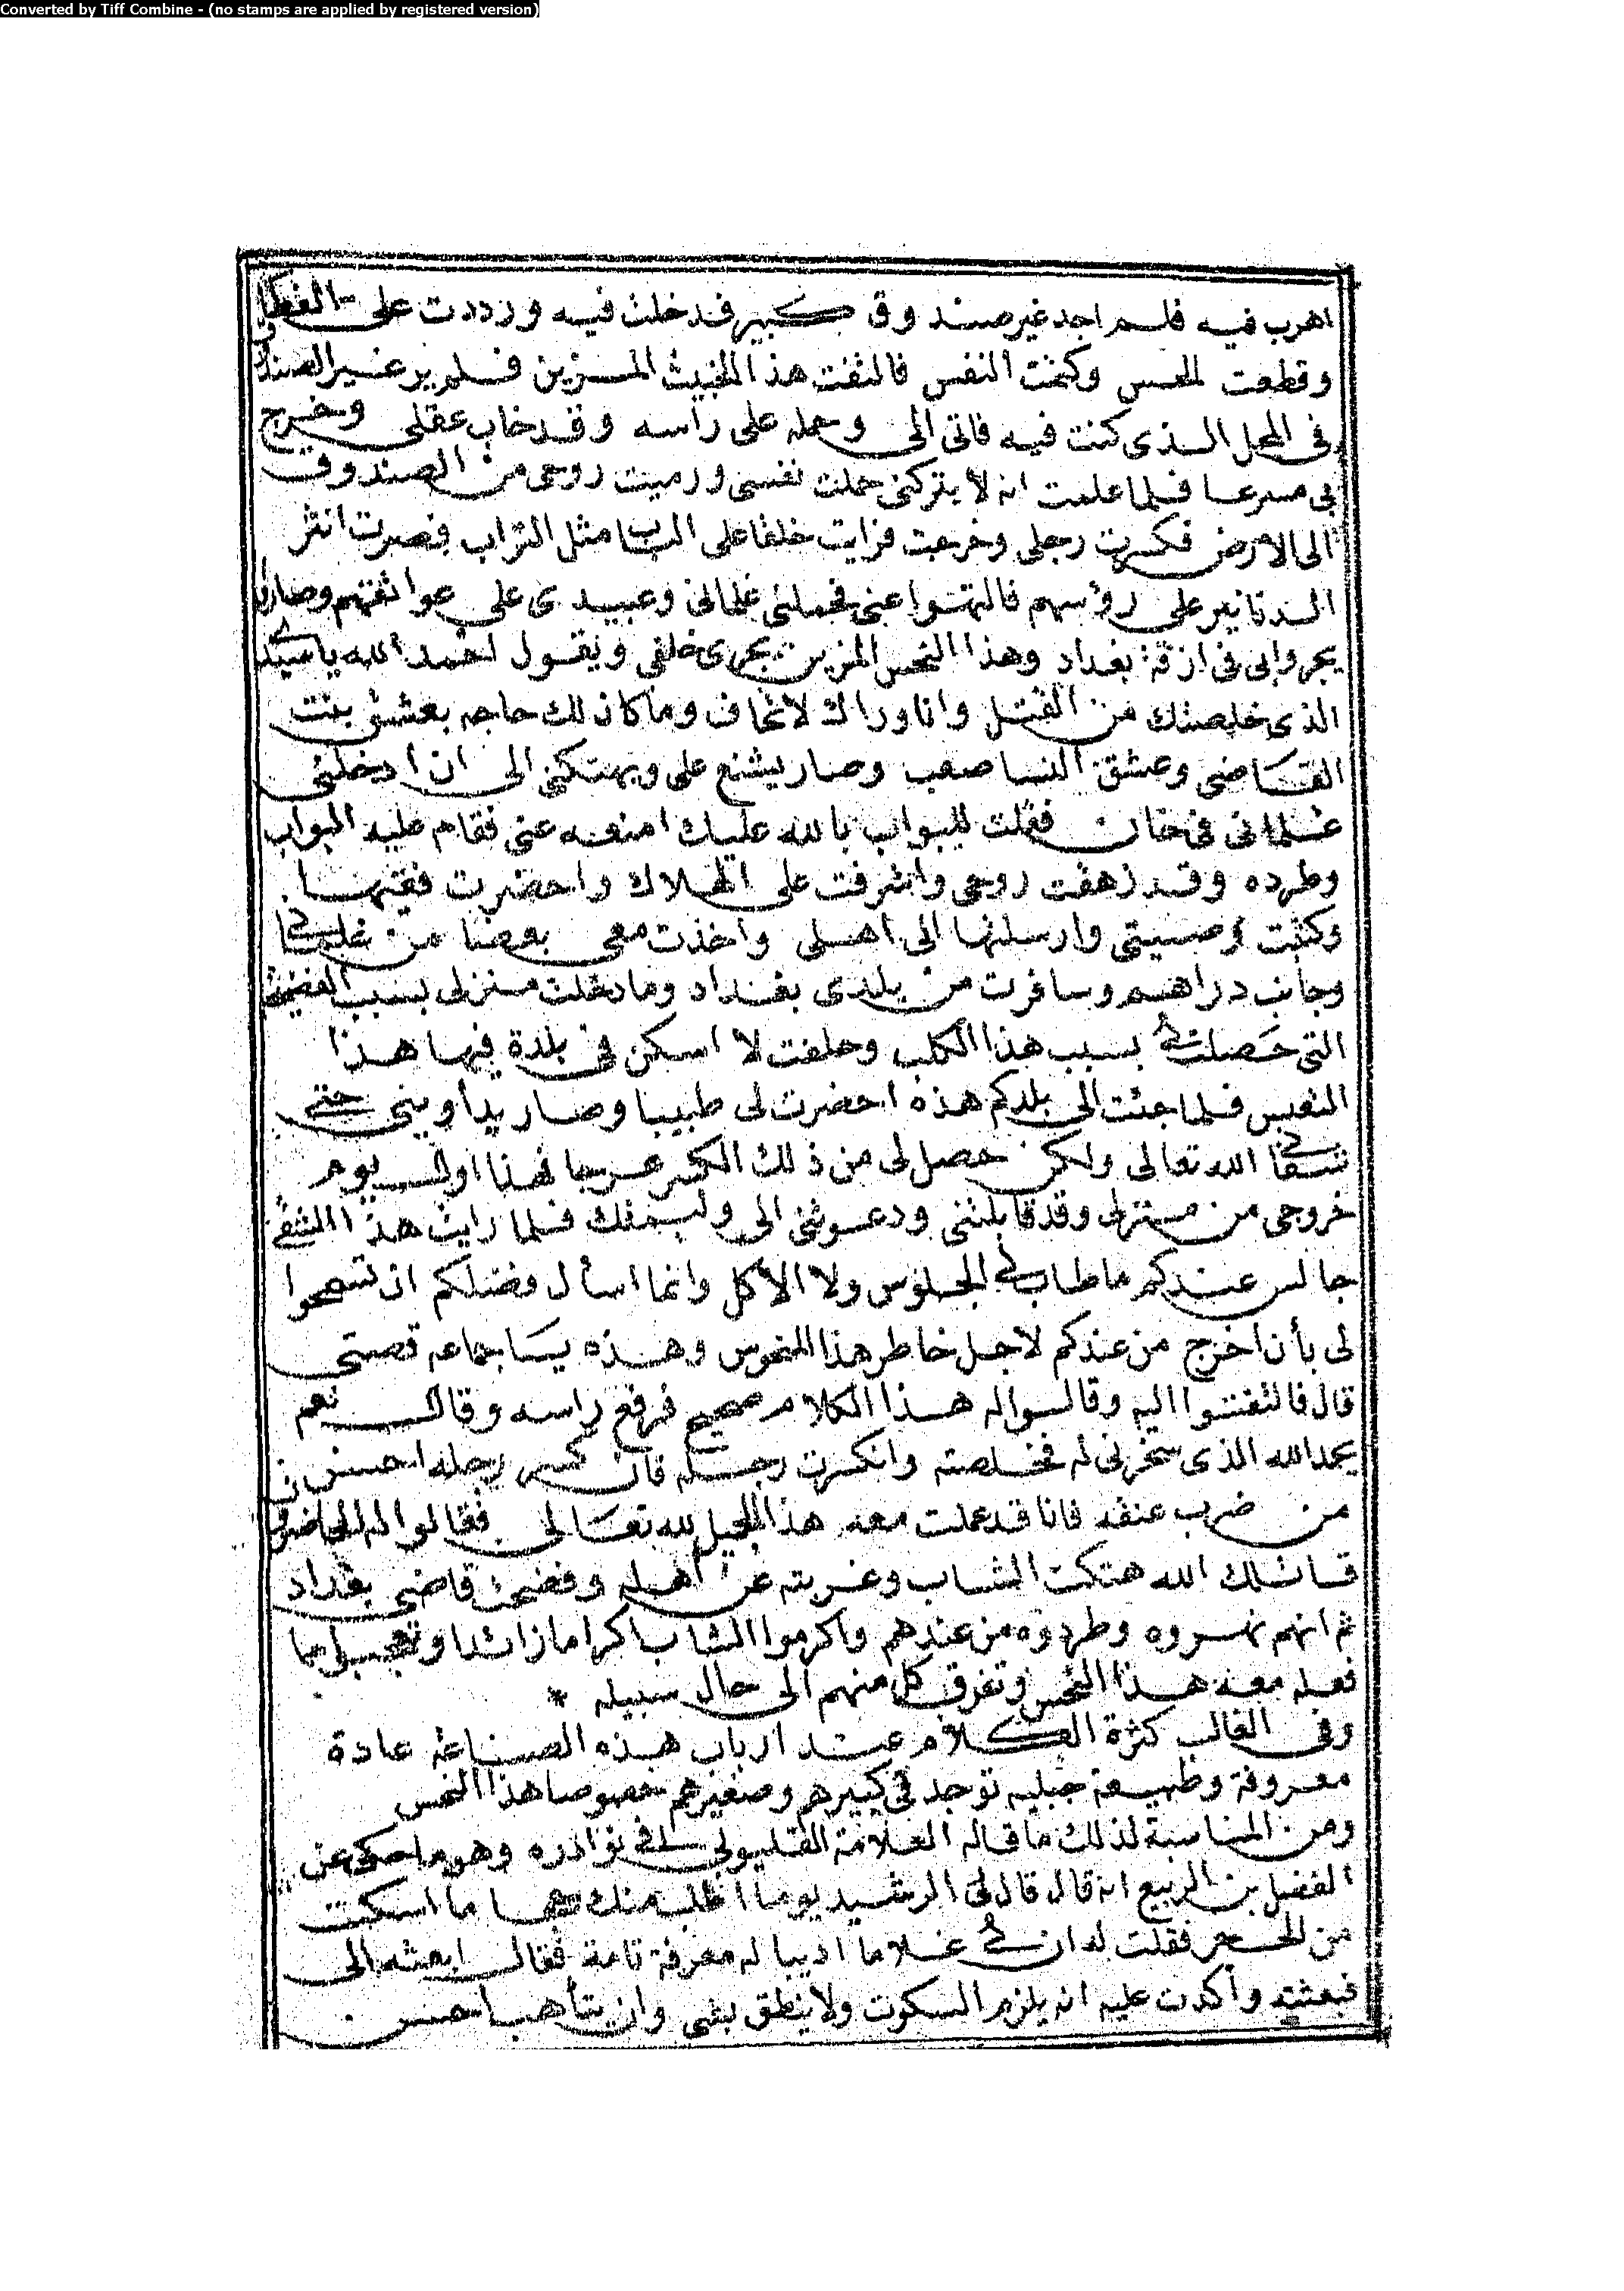 Converted by Tiff Combine - (no stamps are applied by registered version)
اهرب فيه فلم اجد غير صندوق كبير فدخلت فيه ورددت على الغطا
وقطعت الحس وكتمت النفس فالتفت هذا الخبيث المزين فلم ير غير الصندوق
فى المحل الذى كنت فيه فاتى الى وحمله على راسه وقد خاب عقلى وخرج
بى مسرعا فلما علمت انه لا يتركنى حملت نفسى ورميت روحى من الصندوق
الى الارض فكسرت رجلى وخرجت فرايت خلقا على الباب مثل التراب فصرت انثر
الدنانير على رؤسهم فالتهوا عنى فحملنى غلمانى وعبيدى على عواتقهم وصاروا
يجروا بى فى ازقة بغداد وهذا النحس المزين يجرى خلفى ويقول احمد الله ياسيدى
الذى خلصتك من القتل وانا وراك لا تخاف وما كان لك حاجه بعشق بنت
القاضى وعشق النسا صعب وصار يشنع على ويهتكنى الى ان ادخلنى
غلمانى فى خان فقلت للبواب بالله عليك امنعه عنى فقام عليه البواب
وطرده وقد زهقت روحى واشرفت على الهلاك واحضرت فقيها
وكتبت وصيتى وارسلتها الى اهلى واخذت معى بعضا من غلمانى
وجانب دراهم وسافرت من بلدى بغداد وما دخلت منزلى بسبب الفضيحة
التى حصلت لى بسبب هذا الكلب وحلفت لا اسكن فى بلدة فيها هذا
النحس فلما جئت الى بلدكم هذه احضرت لى طبيبا وصار يداوينى حتى
شفانى الله تعالى ولكن حصل لى من ذلك الكسر عرجا فهذا اول يوم
خروجى من منزلى وقد قابلتنى ودعوتنى الى وليمتك فلما رايت هذا الشقى
جالس عندكم ما طاب لى الجلوس ولا الاكل وانما اسأل فضلكم ان تسمحوا
لى بأن اخرج من عندكم لاجل خاطر هذا المنحوس وهذه يا جماعه قصتى
قال فالتفتوا اليه وقالوا له هذا الكلام صحيح فرفع راسه وقال نعم
يحمد الله الذى سخرنى له فخلصته وانكسرت رجله فان كسر رجله احسن
من ضرب عنقه فانا قد عملت معه هذا الجميل لله تعالى فقالوا له الحاضرون
قاتلك الله هتكت الشاب وغربته عن اهله وفضحت قاضى بغداد
ثم انهم نهروه وطردوه من عندهم واكرموا الشاب اكراما زائدا وتعجبوا مما
فعله معه هذا النحس وتفرق كل منهم الى حال سبيله *
وفى الغالب كثرة الكلام عند ارباب هذه الصناعة عادة
معروفة وطبيعة جبليه توجد فى كبيرهم وصغيرهم خصوصا هذا النحس
ومن المناسبة لذلك ما قاله العلامة القليوبى فى نوادره وهو ما حكى عن
الفضل بن الربيع انه قال قال لى الرشيد يوما اطلب منك حجاما اسكت
من الحجر فقلت له ان لى غلاما اديبا له معرفة تامة فقال ابعثه الى
فبعثته وأكدت عليه انه يلزم السكوت ولا ينطق بشى وان يتأهب احسن